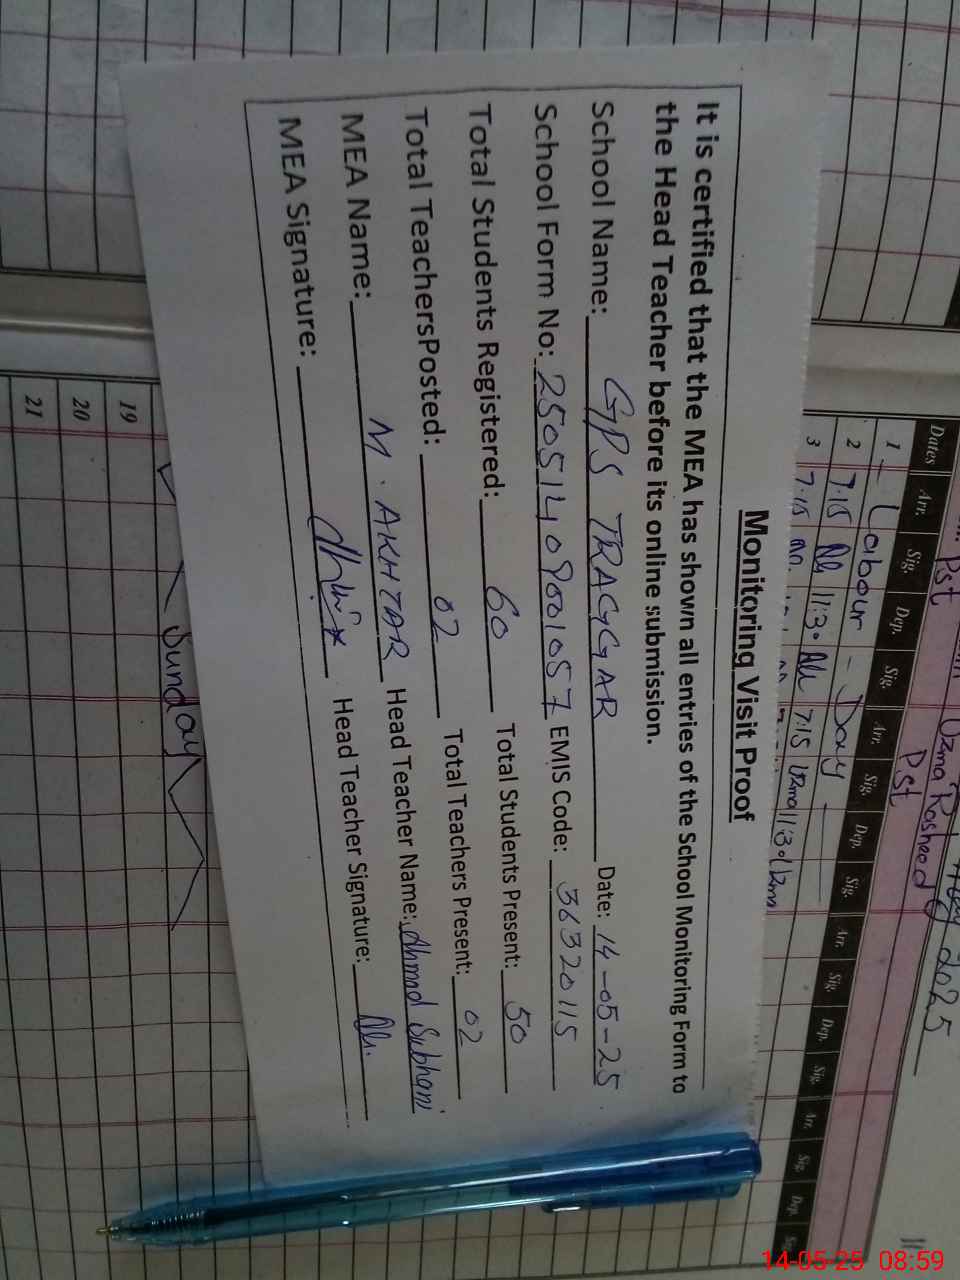 Monitoring Visit Proof
It is certified that the MEA has shown all entries of the School Monitoring Form to
the Head Teacher before its online submission.
School Name: GPS TRAGGAR Date: 14-05-25
School Form No: 25051409001057 EMIS Code: 36320115
Total Students Registered: 60 Total Students Present: 50
Total TeachersPosted: 02 Total Teachers Present: 02
MEA Name: M. AKHTAR Head Teacher Name: Ahmad Subhani
MEA Signature: Head Teacher Signature:
2025
Pst Uzma Rasheed
Pst
Dates Arr. Sig. Dep. Sig. Arr. Sig. Dep. Sig. Arr. Sig. Dep. Sig. Arr. Sig. Dep. Sig.
1 Labour - Day
2 7:15 11:30 7:15 Uzma 11:30 Uzma
3 7:15
19
20
21
Sunday
14-05-25 08:59